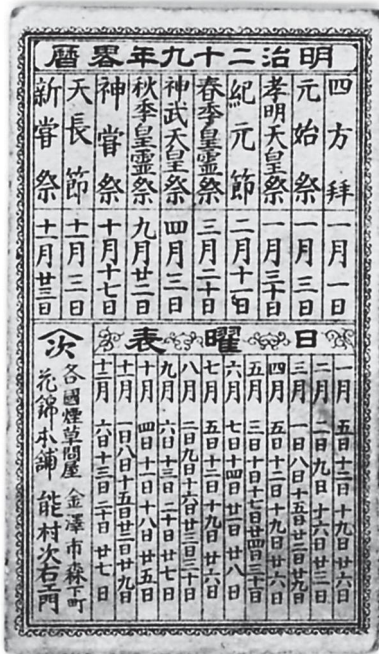 明治二十九年畧暦
四方拝 一月一日
元始祭 一月三日
孝明天皇祭 一月三十日
紀元節 二月十一日
春季皇霊祭 三月二十日
神武天皇祭 四月三日
秋季皇霊祭 九月廿二日
神嘗祭 十月十七日
天長節 十一月三日
新嘗祭 十一月廿三日
日曜表
一月 五日十二日十九日廿六日
二月 二日九日十六日廿三日
三月 一日八日十五日廿二日廿九日
四月 五日十二日十九日廿六日
五月 三日十日十七日廿四日三十一日
六月 七日十四日廿一日廿八日
七月 五日十二日十九日廿六日
八月 二日九日十六日廿三日三十日
九月 六日十三日二十日廿七日
十月 四日十一日十八日廿五日
十一月 一日八日十五日廿二日廿九日
十二月 六日十三日二十日廿七日
次
各國煙草問屋 金澤市森下町
花錦本舗 能村次右エ門